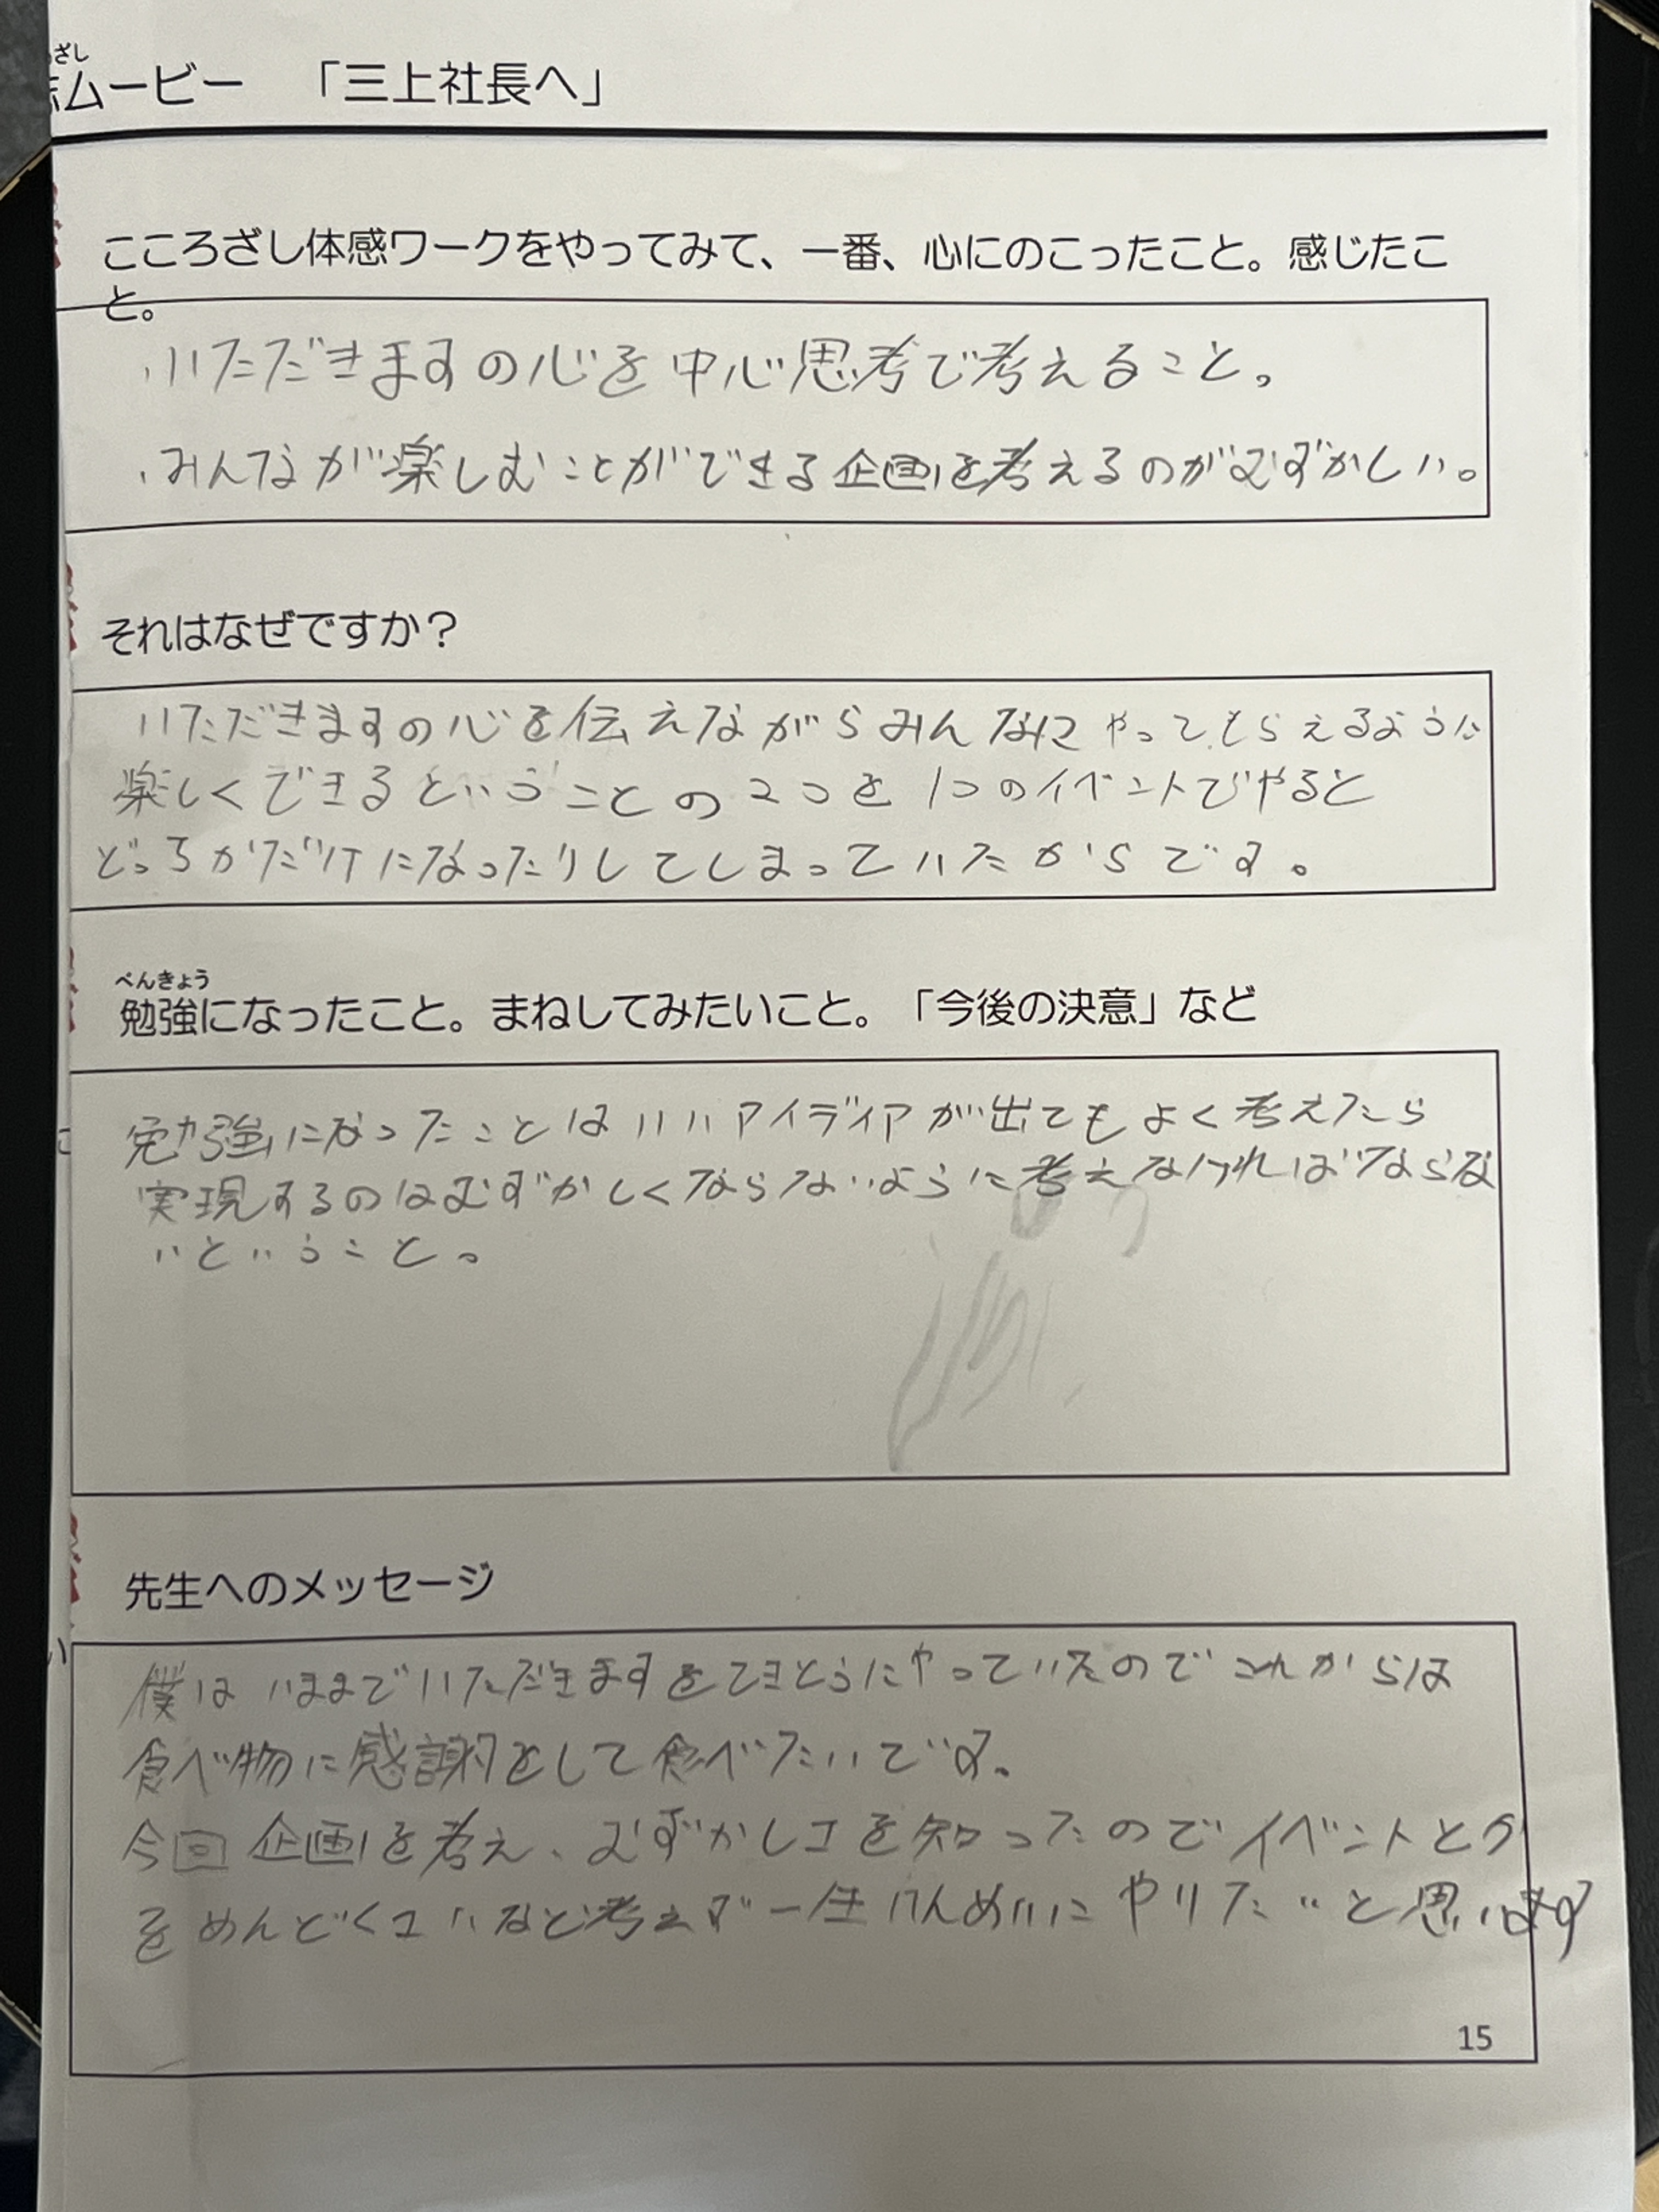 ざし
ムービー 「三上社長へ」
こころざし体感ワークをやってみて、一番、心にのこったこと。感じたこ
と。
・いただきますの心を中心思考で考えること。
・みんなが楽しむことができる企画を考えるのがむずかしい。
それはなぜですか？
いただきますの心を伝えながらみんなにやってもらえるように
楽しくできるということの2つを1つのイベントでやると
どっちかだけになったりしてしまっていたからです。
べんきょう
勉強になったこと。まねしてみたいこと。「今後の決意」など
勉強になったことはいいアイディアが出てもよく考えたら
実現するのはむずかしくならないように考えなければならな
いということ。
先生へのメッセージ
僕はいままでいただきますをてきとうにやっていたのでこれからは
食べ物に感謝をして食べたいです。
今回企画を考え、むずかしさを知ったのでイベントとか
をめんどくさいなど考えず一生けんめいにやりたいと思います
15